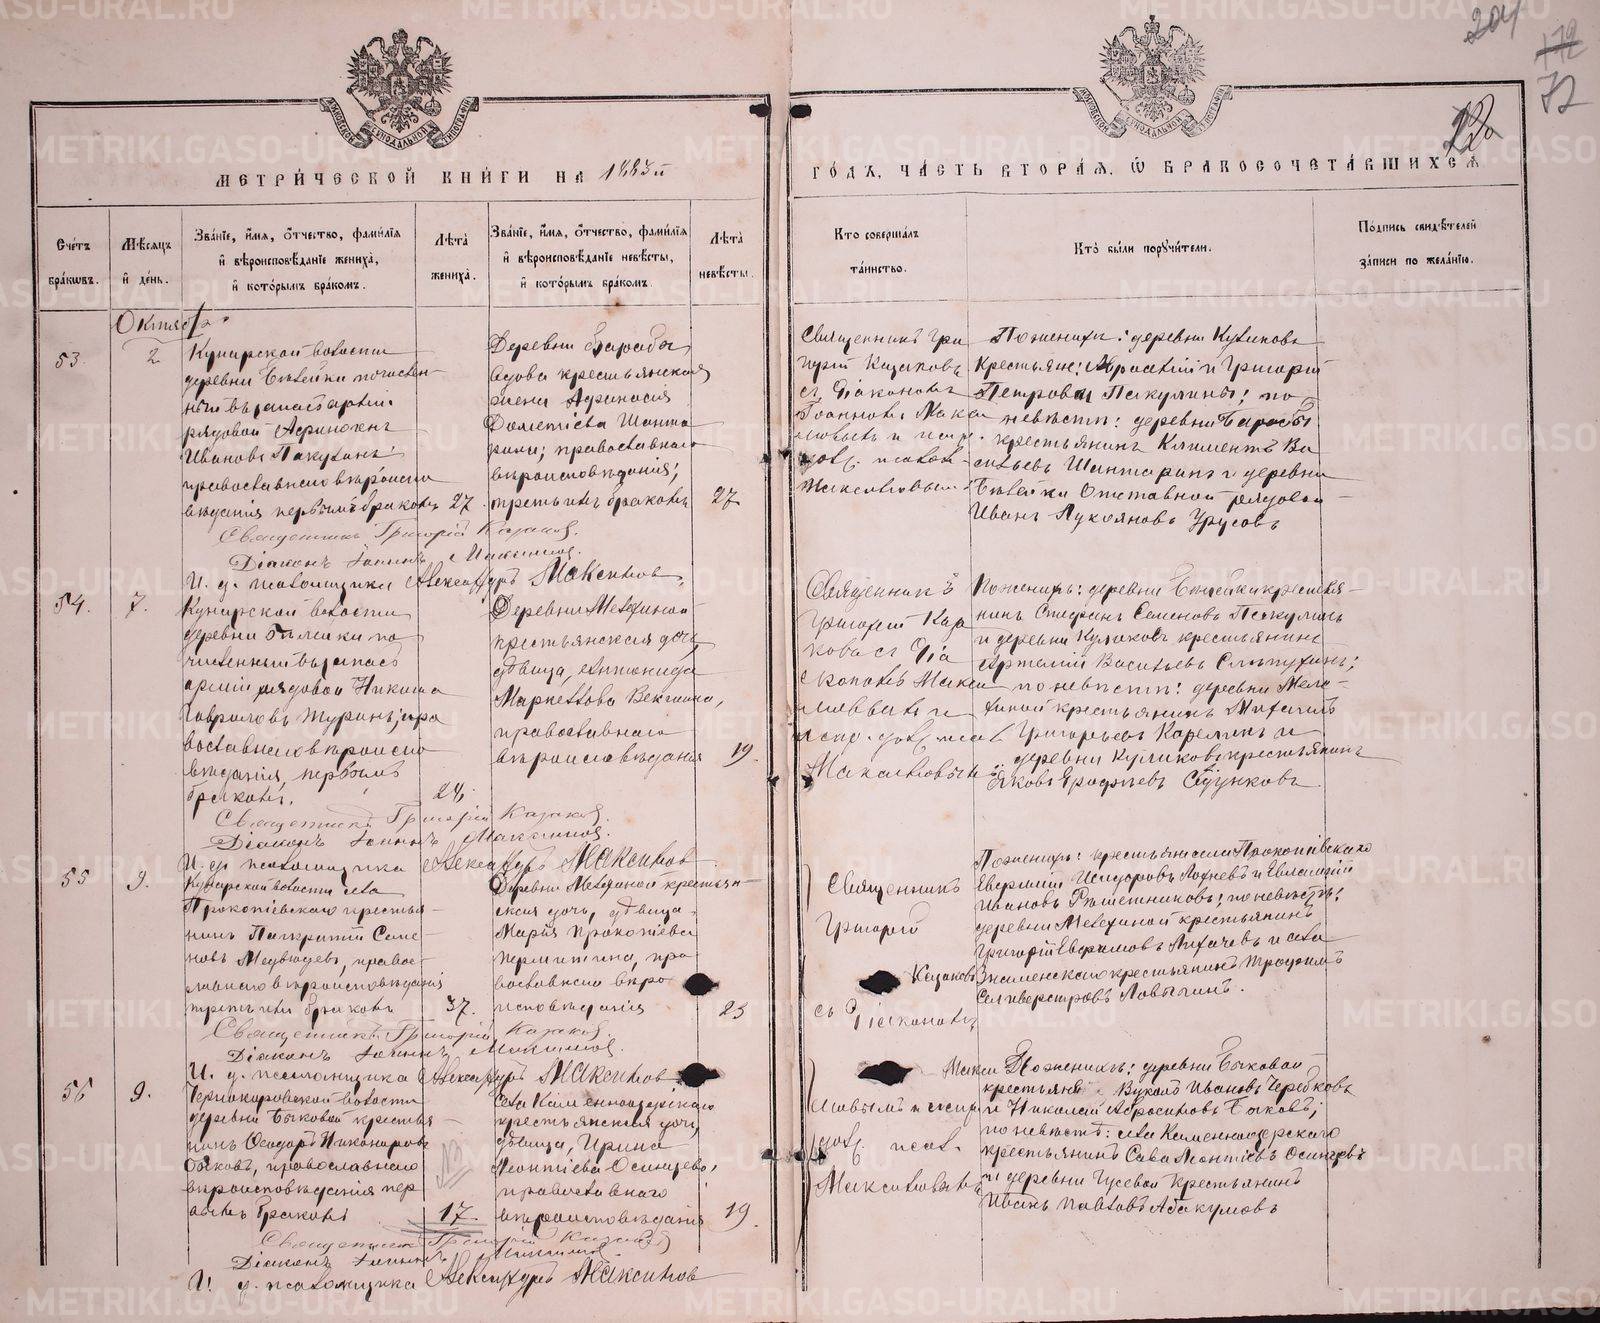 МЕТРИ́ЧЕСКОЙ КНИ́ГИ НА 1883й
ГО́ДЪ, ЧА́СТЬ ВТОРА́Я, Ѽ БРАКОСОЧЕТА́ВШИХСѦ
204
172
72
Сче́тъ бра́кѡвъ.
Мѣ́сѧцъ и҆ де́нь.
Зва́нїе, и҆́мѧ, ѻ҆́тчество, фами́лїѧ и҆ вѣроисповѣ́данїе жениха̀, и҆ кото́рымъ бра́комъ.
Лѣ́та жениха̀.
Зва́нїе, и҆́мѧ, ѻ҆́тчество, фами́лїѧ и҆ вѣроисповѣ́данїе невѣ́сты, и҆ кото́рымъ бра́комъ.
Лѣ́та невѣ́сты.
Кто̀ соверша́лъ та́инство.
Кто̀ бы́ли порꙋчи́тели.
По́дпись свидѣ́телей за́писи по жела́нїю.
Октяб
53.
2
Кунарской волости
деревни
рядовой Афиноген
Ивановъ Пакулинъ
православнаго вѣроиспо
вѣданія первымъ бракомъ
27
Деревни
крестьянская
жена Афанасія
Дометіева Шанта
рина, православнаго
вѣроисповѣданія,
третьимъ бракомъ
27
Священникъ Гри
горій Казаковъ
съ Діакономъ
Іоанномъ Макси
мовымъ и испр.
долж. псалом.
Максимовымъ
По женихѣ: деревни Куликовъ
крестьяне: и Григорій
Петровы Пакулины; по
невѣстѣ: деревни
крестьянинъ Климентъ Ва
сильевъ Шантаринъ и деревни
отставной рядовой
Иванъ Лукояновъ Урусовъ
Священникъ Григорій Казаковъ.
Діаконъ Іоаннъ Максимовъ.
И. д. псаломщика Александръ Максимовъ.
54.
7.
Кунарской волости
деревни
численный въ запасъ
арміи рядовой Никита
Гавриловъ Журинъ, пра
вославнаго вѣроиспо
вѣданія, первымъ
бракомъ.
24.
Деревни Мелехиной
крестьянская дочь,
дѣвица, Антонида
Маркелова Векшина,
православнаго
вѣроисповѣданія
19
Священникъ
Григорій Каза
ковъ съ Діа
кономъ Макси
мовымъ и
испр. долж. псал
Максимовымъ
По женихѣ: деревни крестья-
нинъ Стефанъ Семеновъ Пакулинъ
и деревни Куликовъ крестьянинъ
Артемій Васильевъ
по невѣстѣ: деревни Меле-
хиной крестьянинъ Михаилъ
Григорьевъ Карелинъ и
деревни Куликовъ крестьянинъ
Яковъ
Священникъ Григорій Казаковъ.
Діаконъ Іоаннъ Максимовъ.
И. д. псаломщика Александръ Максимовъ
55
9.
Кунарской волости села
Прокопіевскаго крестья-
нинъ Панкратій Семе
новъ Медвѣдевъ, право-
славнаго вѣроисповѣданія
третьимъ бракомъ
37.
Деревни Мелехиной крестьян-
ская дочь, дѣвица
Марія Прокопіева
Пермитина, пра
вославнаго вѣро
исповѣданія
23
Священникъ
Григорій
Казаковъ
съ Діакономъ
По женихѣ: крестьяне села Прокопіевскаго
Евфимій Исидоровъ и Евлампій
Ивановъ Рѣшетниковъ; по невѣстѣ:
деревни Мелехиной крестьянинъ
Григорій Евфимовъ Лихачевъ и села
Знаменскаго крестьянинъ Трофимъ
Селиверстовъ
Священникъ Григорій Казаковъ.
Діаконъ Іоаннъ Максимовъ.
И. д. псаломщика Александръ Максимовъ
56
9.
волости
деревни Быковой крестья-
нинъ Никаноровъ
Быковъ, православнаго
вѣроисповѣданія пер
вымъ бракомъ
17.
Села Каменноозерскаго
крестьянская дочь,
дѣвица, Ирина
Леонтіева Осинцева,
православнаго
вѣроисповѣданія
19.
Макси
мовымъ и испр
долж. псал.
Максимовымъ
По женихѣ: деревни Быковой
крестьяне Вуколъ Ивановъ
и Николай Абросимовъ Быковъ;
по невѣстѣ: села Каменноозерскаго
крестьянинъ Сава Леонтіевъ Осинцевъ
и деревни Гусевой крестьянинъ
Иванъ Павловъ Абакумовъ
Священникъ Григорій Казаковъ
Діаконъ Іоаннъ Максимовъ.
И. д. псаломщика Александръ Максимовъ
METRIKI.GASO-URAL.RU